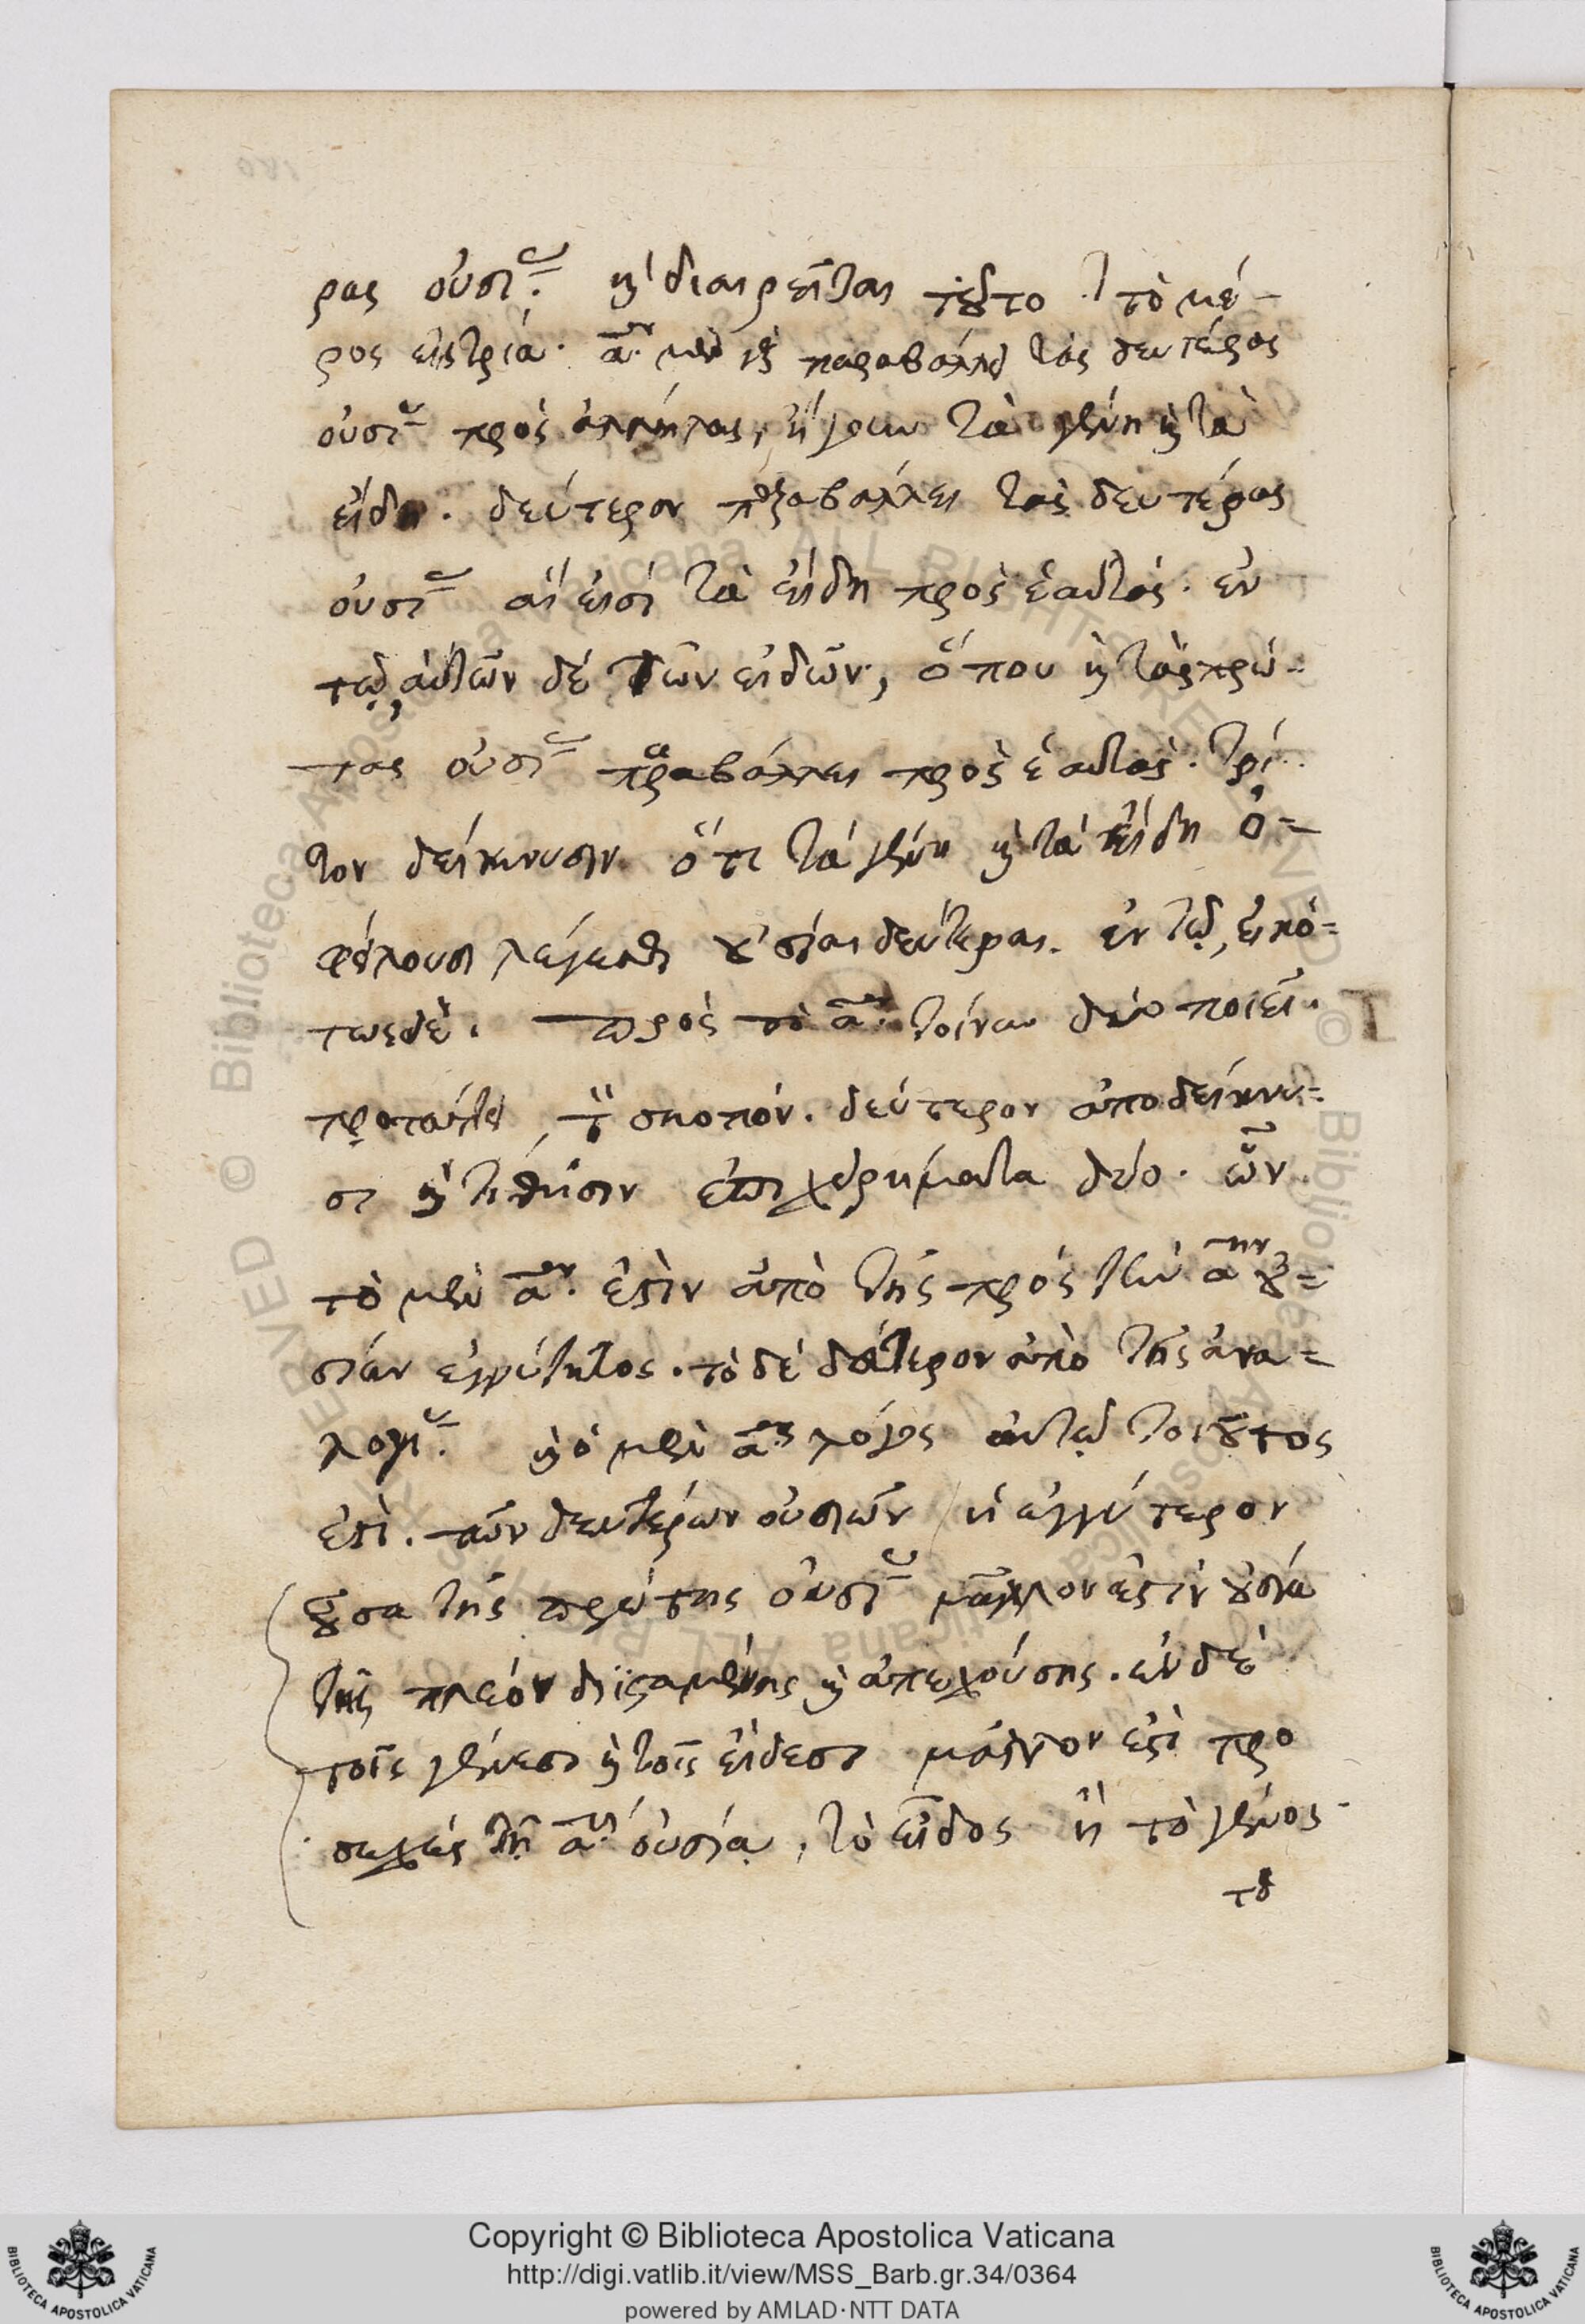 ρας οὐσί(ας). κ(αὶ) διαιρεῖται τοῦτο τὸ μέ-
ρος εἰς τρία. α^ον. μὲν γὰρ παραβάλλει τὰς δευτέρας
οὐσί(ας) πρὸς ἀλλήλας, ἤγουν τὰ γένη κ(αὶ) τὰ
εἴδη. δεύτερον παραβάλλει τὰς δευτέρας
οὐσί(ας) αἵ εἰσι τὰ εἴδη πρὸς ἑαυτάς. ἐν
τῷ αὐτῶν δὲ τῶν εἰδῶν, ὅπου κ(αὶ) τὰς πρώ-
τας οὐσί(ας) παραβάλλει πρὸς ἑαυτάς. τρί-
τον δείκνυσιν ὅτι τὰ γένη κ(αὶ) τὰ εἴδη ὀ=
φείλουσι λέγεσθαι οὐσίαι δεύτεραι. ἐν τῷ, εἰκό=
τως δέ. πρὸς τὸ α^ον. τοίνυν δύο ποιεῖ.
προτάττει, τὸν σκοπόν. δεύτερον ἀποδείκνυ=
σι κ(αὶ) τίθησιν ἐπιχειρήματα δύο. ὧν
τὸ μὲν α^ον. ἐστὶν ἀπὸ τῆς πρὸς τὴν α^ην οὐ=
σίαν ἐγγύτητος. τὸ δὲ δεύτερον ἀπὸ τῆς ἀνα=
λογί(ας). κ(αὶ) ὁ μὲν α^ος λόγος αὐτῷ τοιοῦτος
ἐστί. τῶν δευτέρων οὐσιῶν ἡ ἐγγύτερον
οὖσα τῆς πρώτης οὐσί(ας) μᾶλλον ἐστὶν οὐσία
τῆς πλέον διϊσταμένης κ(αὶ) ἀπεχούσης. ἐν δὲ
τοῖς γένεσι κ(αὶ) τοῖς εἴδεσι μᾶλλον ἐστὶ προ
σεχὲς τῇ α^η. οὐσίᾳ, τὸ εἶδος ἢ τὸ γένος.
τοῦ
Copyright © Biblioteca Apostolica Vaticana
http://digi.vatlib.it/view/MSS_Barb.gr.34/0364
powered by AMLAD·NTT DATA